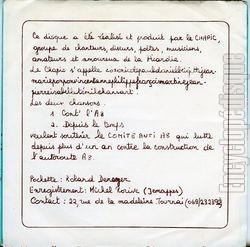 Ce disque a été réalisé et produit par le CHAPIC,
groupe de chanteurs, diseurs, poètes, musiciens,
amateurs et amoureux de la Picardie.
Le Chapic s'appelle
Les deux chansons :
1 Cont' l'A8
2 Depuis le temps
veulent soutenir le COMITE ANTI A8 qui lutte
depuis plus d'un an contre la construction de
l'autoroute A8.
Pochette : Roland
Enregistrement : Michel (Jemappes)
Contact : 22, rue de la madeleine Tournai